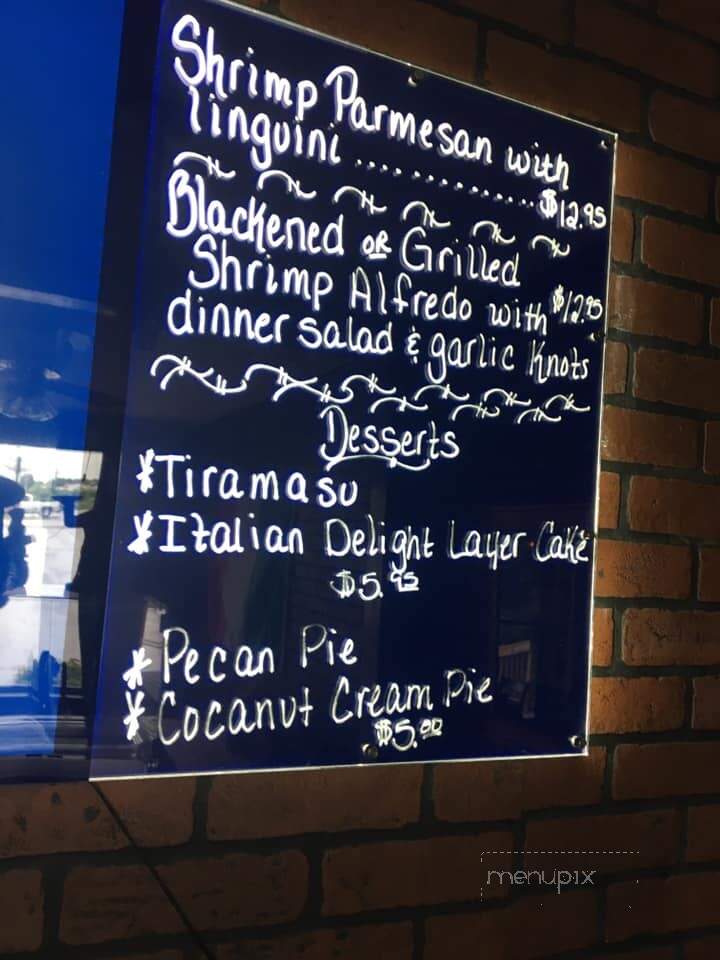 Shrimp Parmesan with
linguini .............. $12.95
Blackened OR Grilled
Shrimp Alfredo with $12.95
dinner salad & garlic Knots
Desserts
*Tiramasu
*Italian Delight Layer Cake
$5.95
* Pecan Pie
* Cocanut Cream Pie
$5.00
menupix